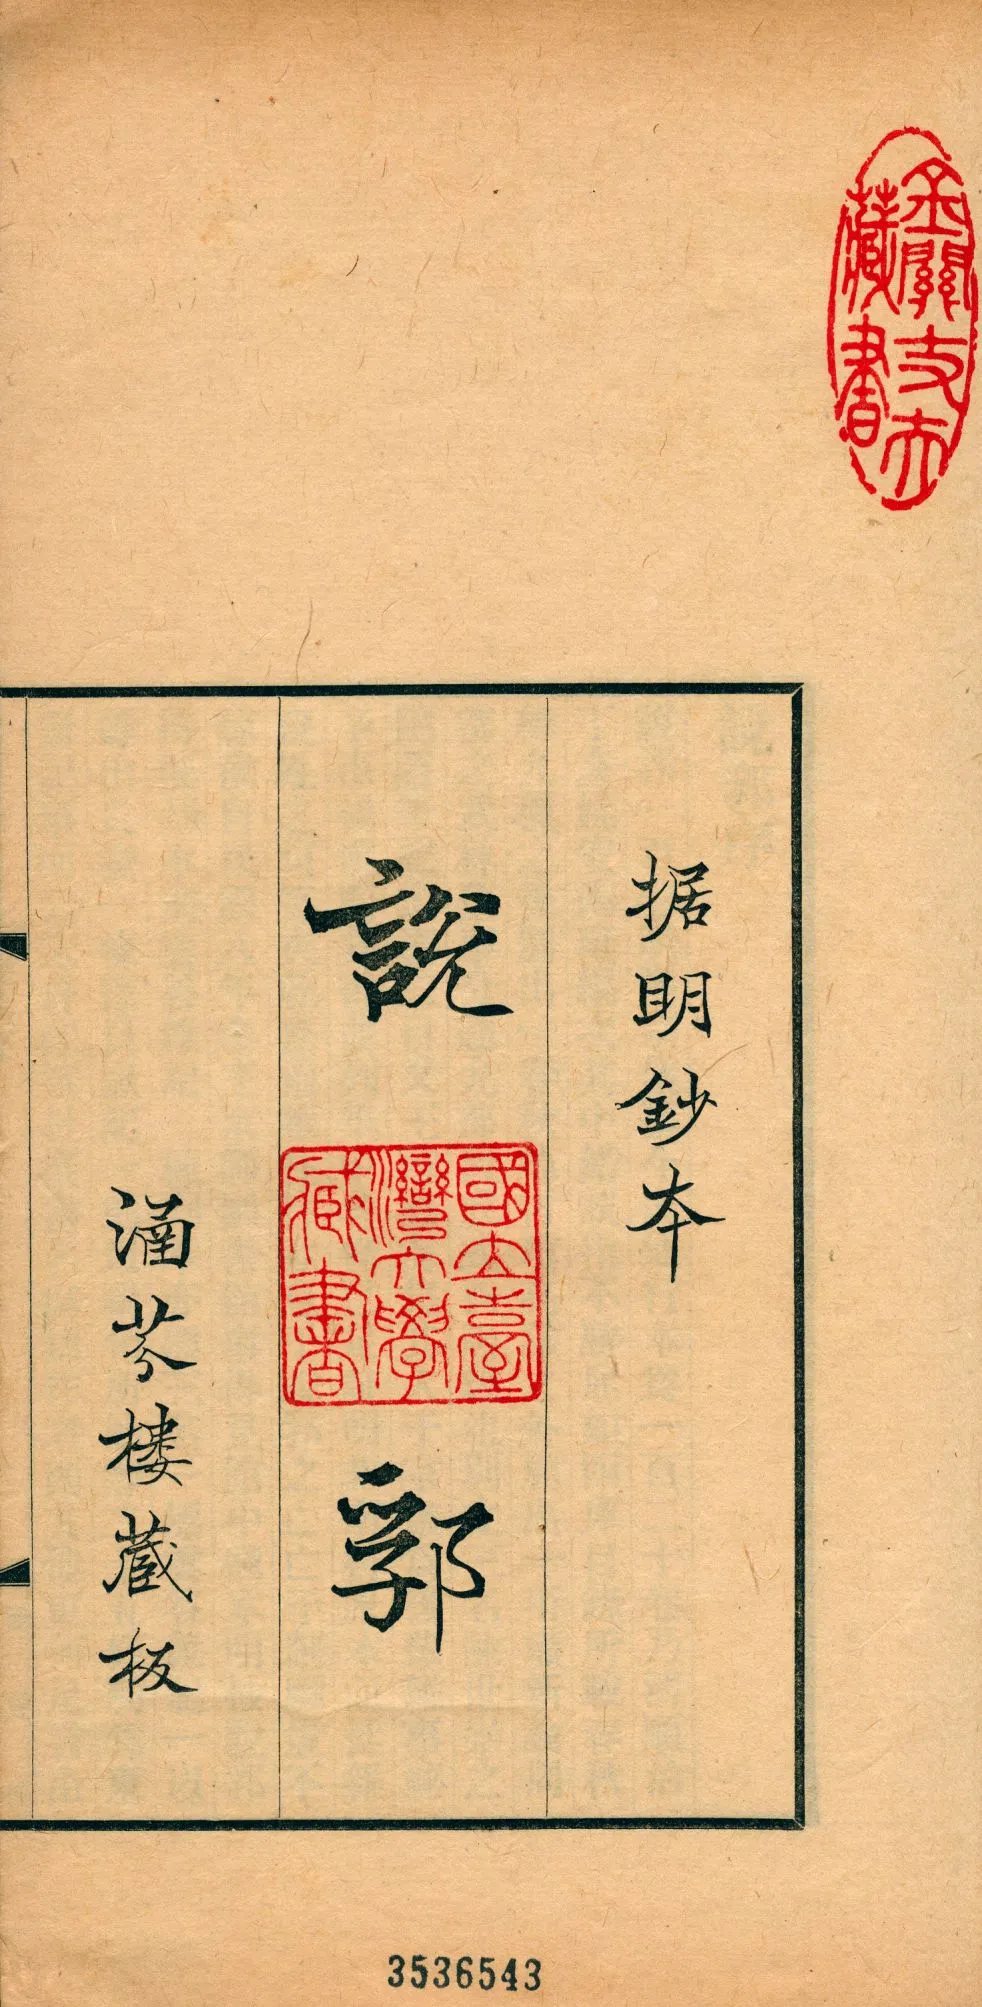 据明鈔本
說郛
涵芬樓藏板
國立臺
灣大學
藏書
金關丈夫
藏書
3536543